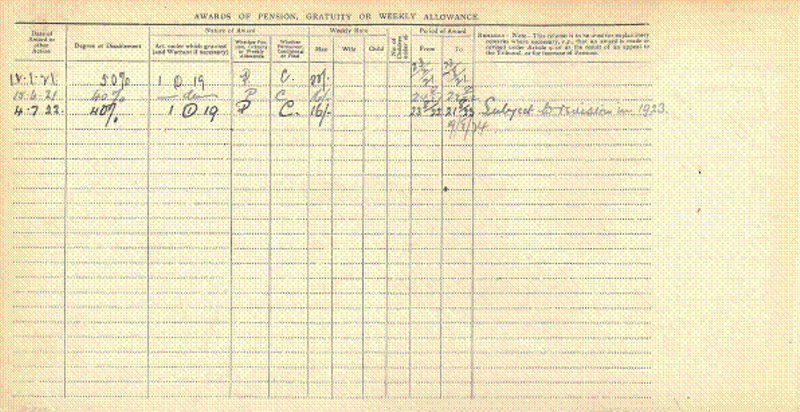 AWARDS OF PENSION, GRATUITY OR WEEKLY ALLOWANCE.
Date of Award or other Action
Degree of Disablement
Nature of Award
Act under which granted (and Warrant if necessary)
Whether Pension, Gratuity or Weekly Allowance
Whether Permanent, Conditional or Final
Weekly Rate
Man
Wife
Child
No. of Children
Period of Award
From
To
REMARKS - Note - This column is to be used for explanatory remarks where necessary, e.g., that an award is made or revised under Article 9 or as the result of an appeal to the Tribunal, or for increase of Pension.
50% 1 @ 19 P C.
15.6.21 40% — do — P C 16/-
4.7.22. 40% 1 @ 19 P C. 16/- Subject to revision in 1923.